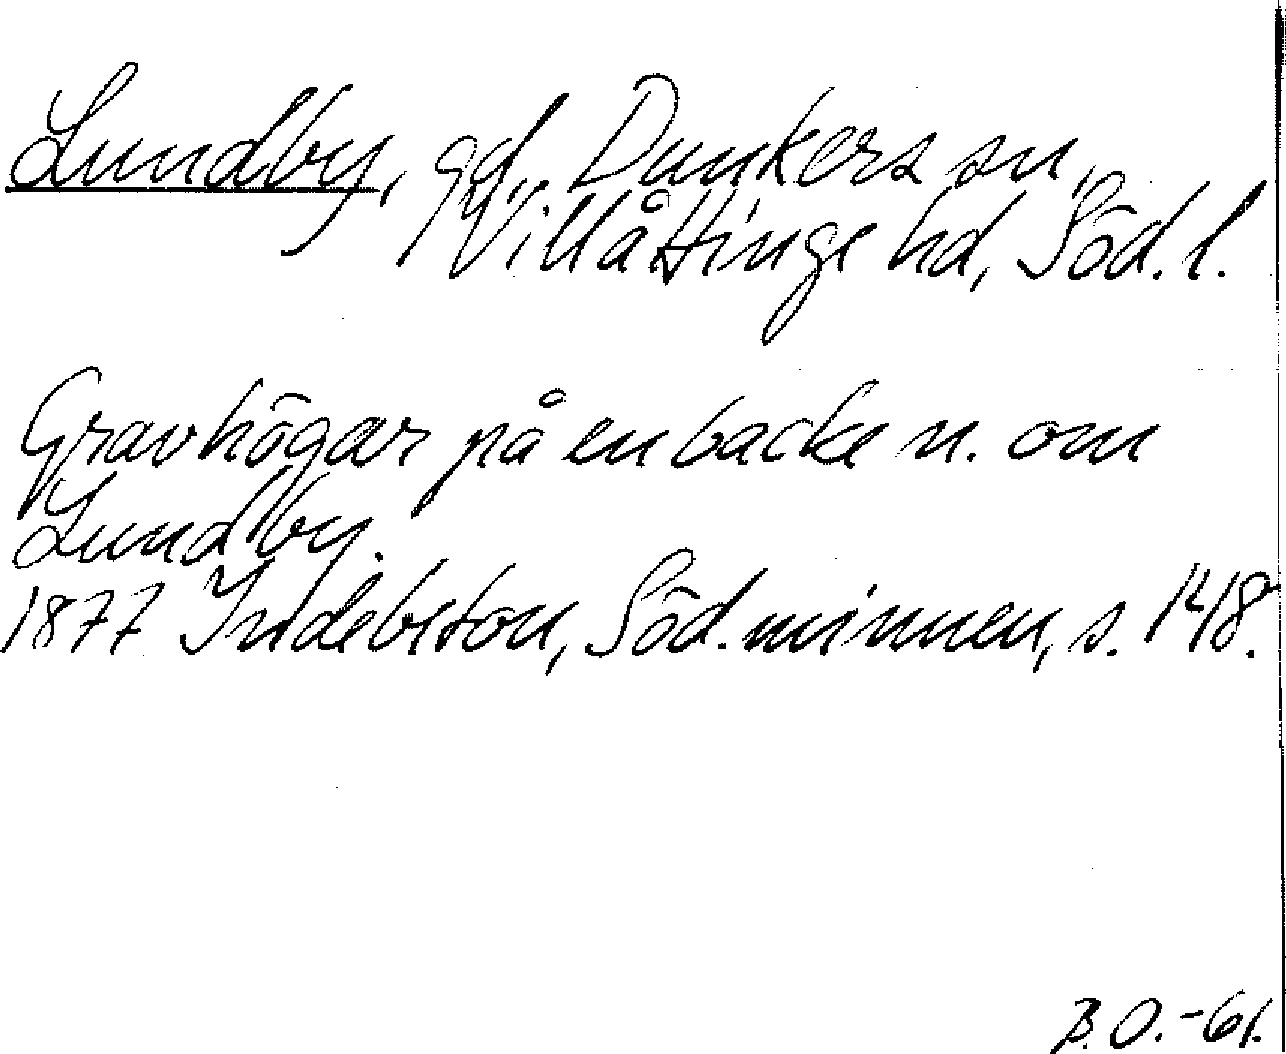 Lundby, gd, Dunkers sn,
Villåttinge hd, Söd. l.
Gravhögar på en backe n. om
Lundby.
1877 Indebetou, Söd. minnen, s. 148.
B. O. -61.